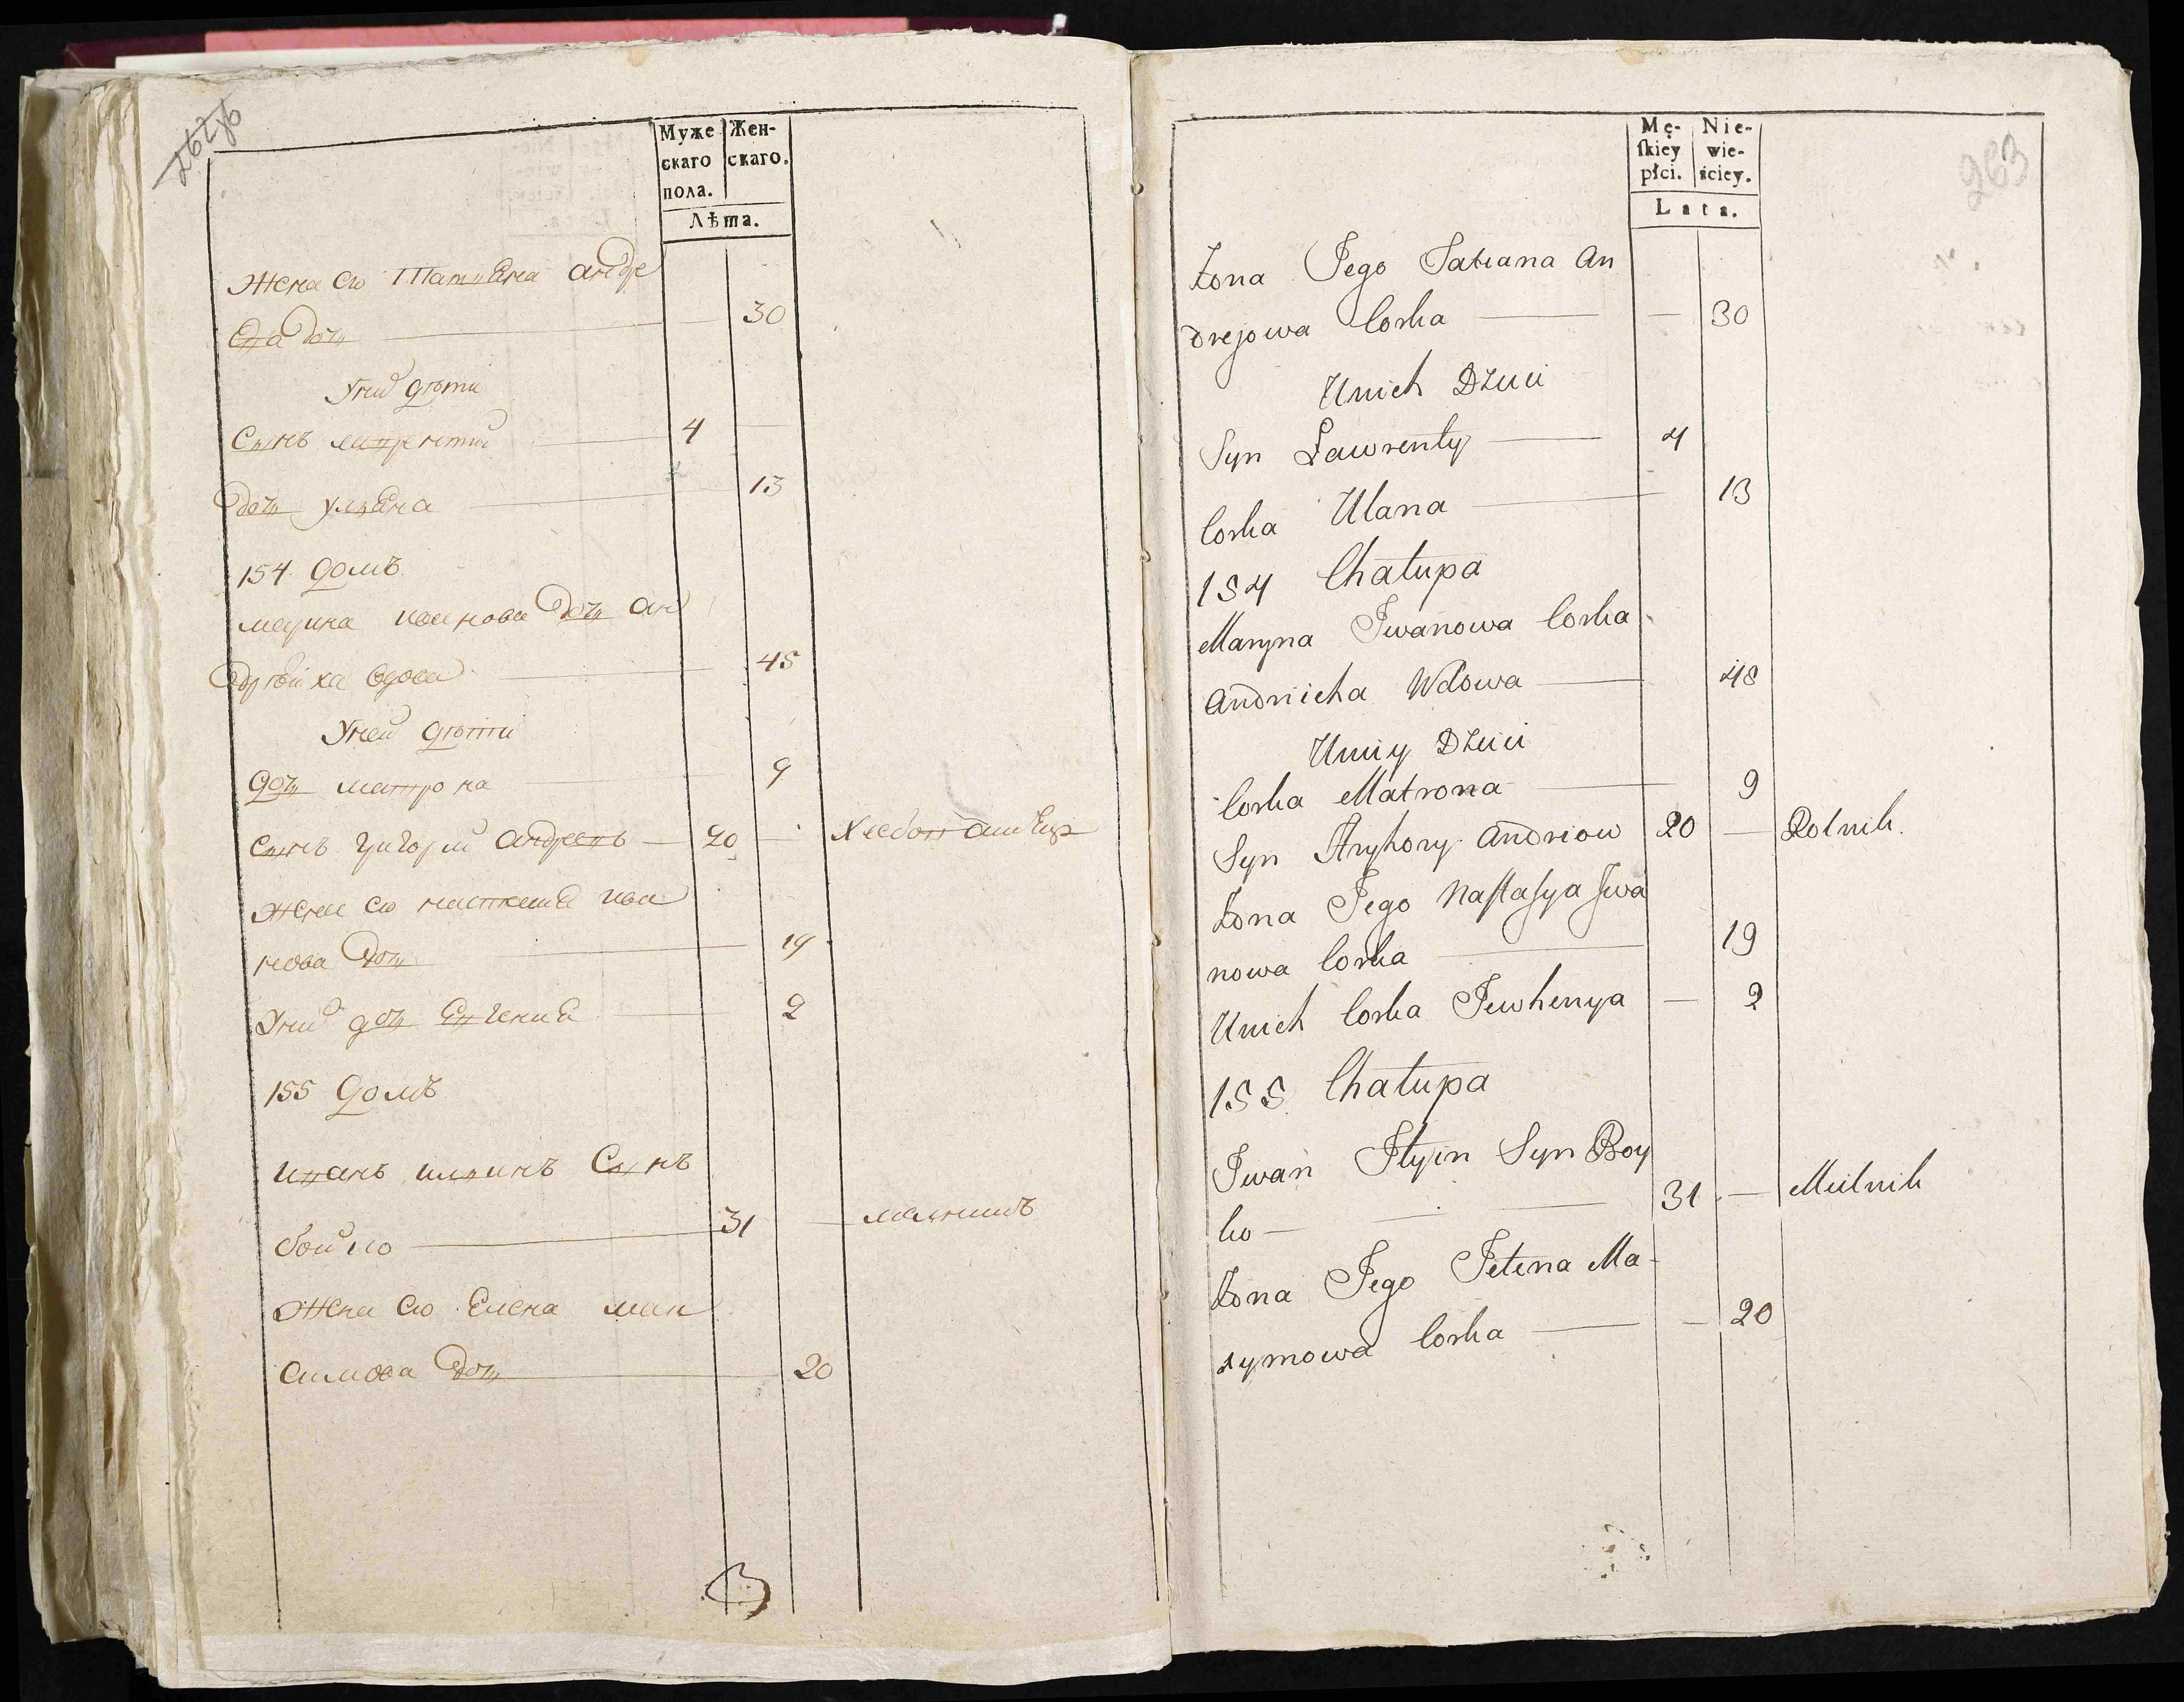 262 об
Муже
скаго
пола.
Жен-
скаго.
Лѣта.
Жена его Татияна андре
ева дочь — 30
У них дѣти
Сынъ лаврентий — 4 —
дочь улияна — 13
154 домъ
марина иванова дочь ан
дрѣиха вдова — 45
У ней дѣти
дочь матрона — 9
Сынъ григорий андреевъ — 20 — Хлебопашецъ
жена его настасия ива
нова дочь — 19
У них дочь Евгения — 2
155 домъ
иванъ илиинъ Сынъ
бойко — 31 — мелникъ
Жена его Елена мак
симова дочь — 20
263
Mę-
ſkiey
płci.
Nie-
wie-
ściey.
Lata.
Żona Jego Tatiana An
drejowa Corka — — 30
Unich Dzieci
Syn Ławrenty — 4
Corka Ulana — 13
154 Chałupa
Maryna Iwanowa Corka
Andriicha Wdowa — 48
Uniey Dzieci
Corka Matrona — 9
Syn Hryhory Andriow 20 — Rolnik.
Żona Jego Naſtaſya Iwa
nowa Corka — 19
Unich Corka Jewhenya — 2
155 Chałupa
Iwan Ilyin Syn Boy
ko — 31 — Mielnik
Żona Jego Jelena Ma-
xymowa Corka — — 20